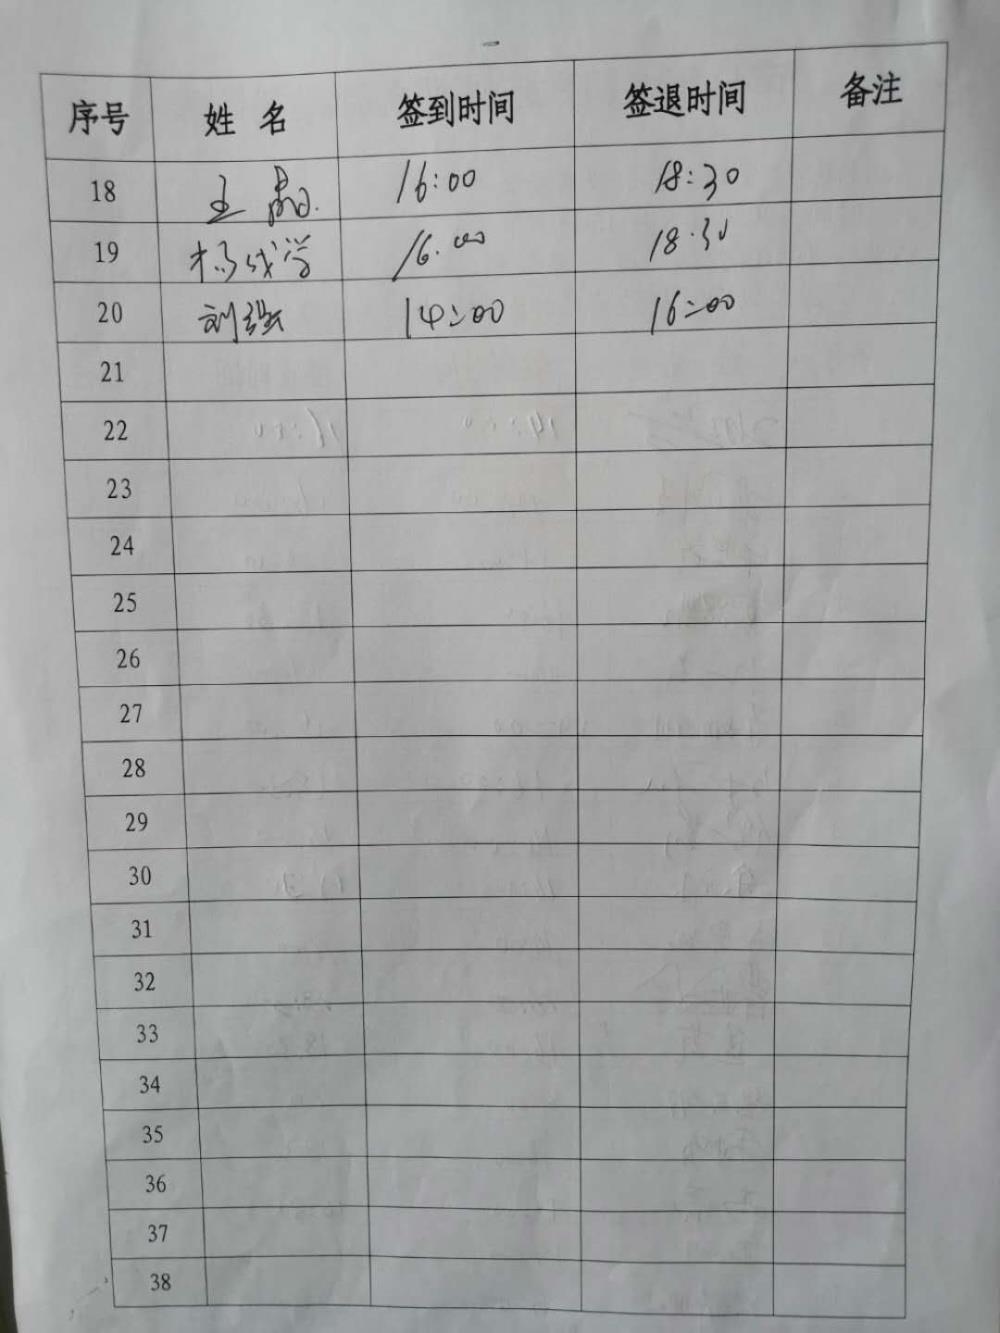 序号 姓 名 签到时间 签退时间 备注
18 王 16:00 18:30
19 杨成学 16:00 18:30
20 刘强 14:00 16:00
21
22
23
24
25
26
27
28
29
30
31
32
33
34
35
36
37
38